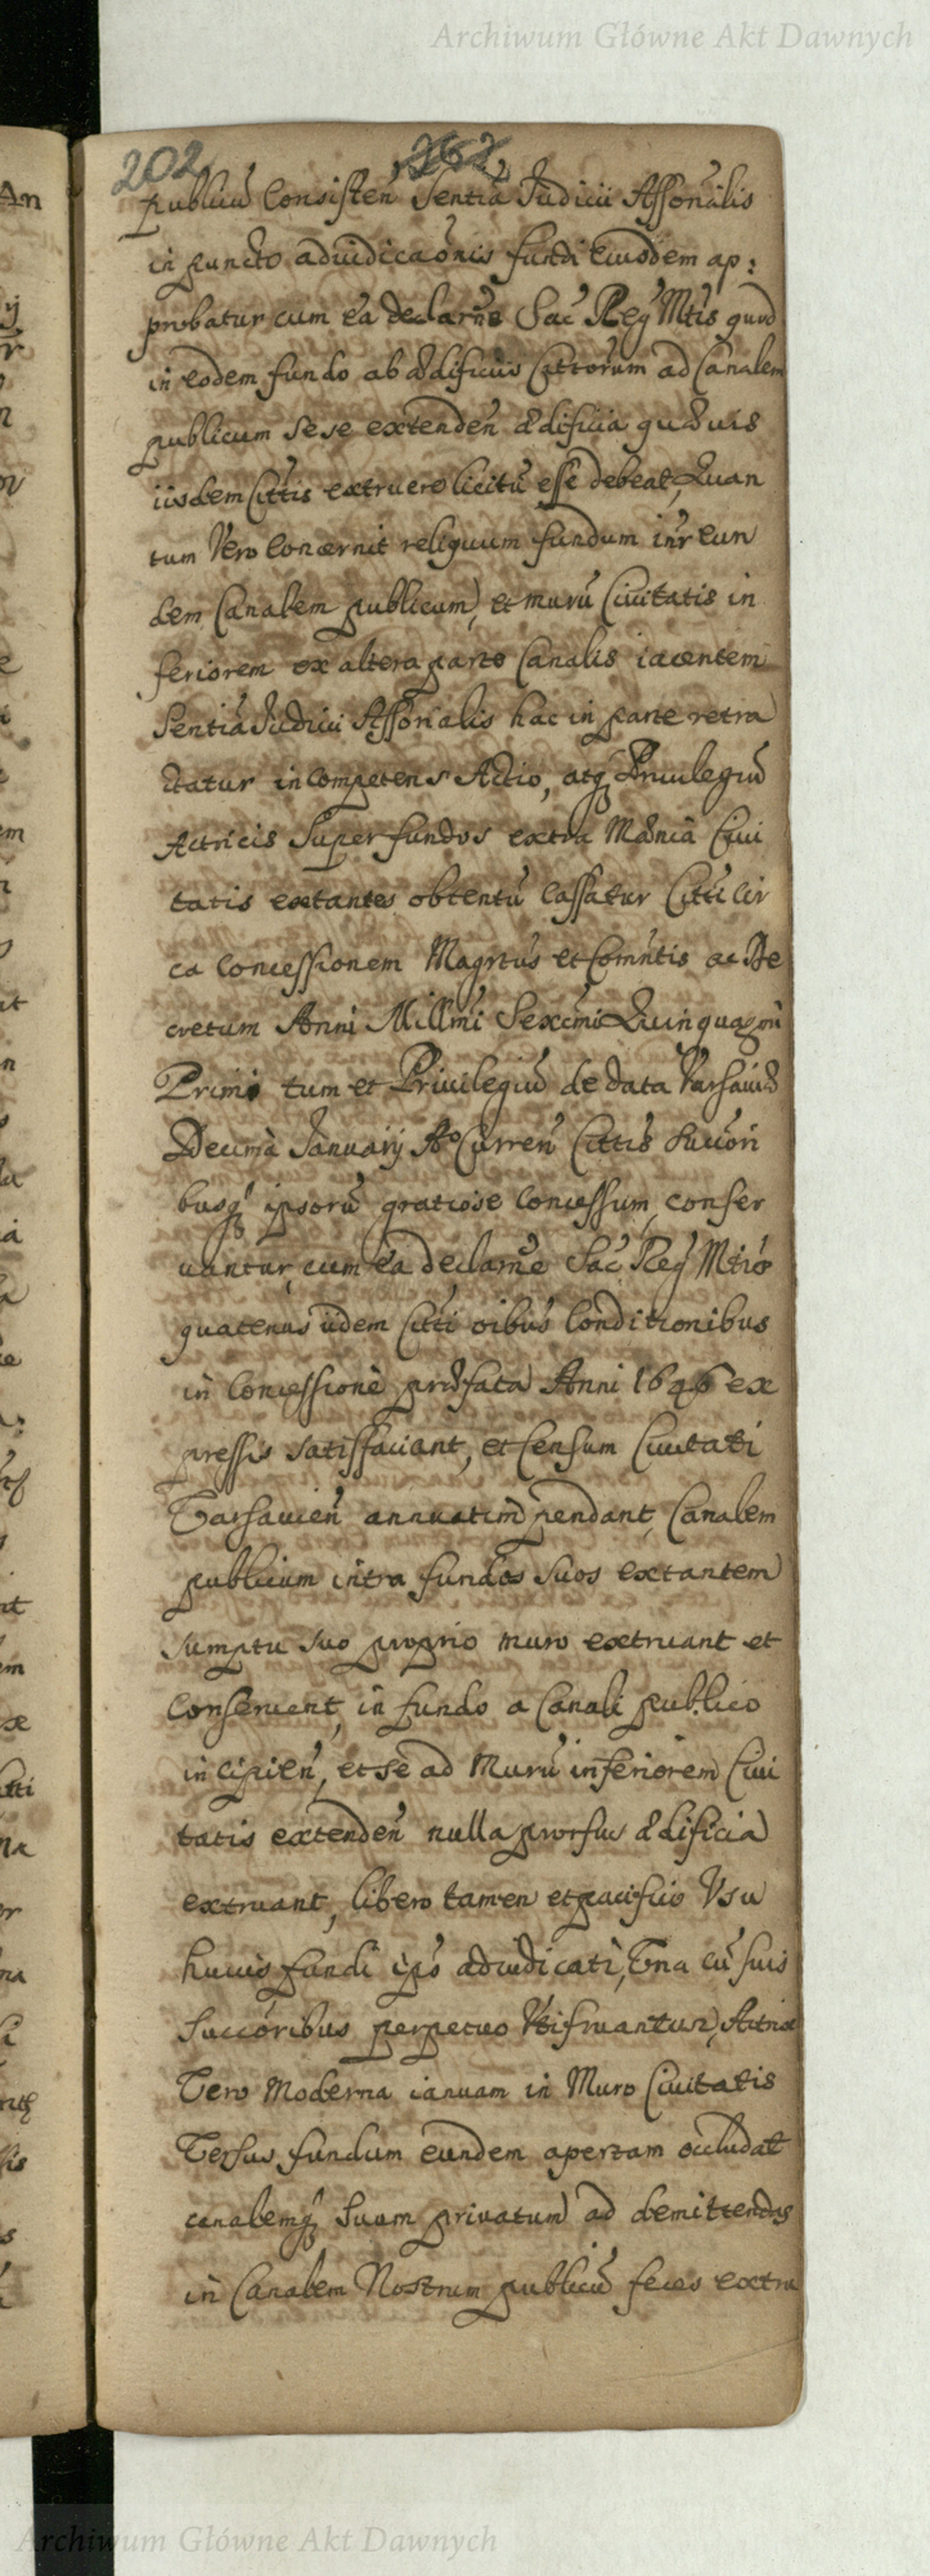 Archiwum Główne Akt Dawnych
202 262
publicũ Consisten̄ Sentiã Judicii Assoñalis
in puncto adiudicaõnis fundi eiusdem ap:
probatur cum ea declarñe Sac̃ Reg̃ Mt̃is quod
in eodem fundo ab ædificiis Cittorum ad Canalem
publicum sese extenden̄ ædificia quæuis
iisdem Citt̃is extruere licitũ esse debeat, Quan
tum Vero Concernit reliquum fundum int̃r eun
dem Canalem publicum, et murũ Ciuitatis in
feriorem ex altera parte Canalis iacentem
Sentiã Judicii Assoñalis hac in parte retra
ctatur incompetens Actio, atq̃ Priuilegiũ
Actricis Super fundos extra Mænia Ciui
tatis extantes obtentũ Cassatur Citt̃i cir
ca Concessionem Magr̃tus et Com̃ntis ac De
cretum Anni Millm̃i Sexcm̃i Quinquagm̃i
Primi tum et Priuilegiũ de data Varsauiæ
Decima Januarij Aº Curren̄ Citt̃is Succori
busq̃ ipsorũ gratiose Concessum, conser
uantur, cum ea declarñe Sac̃ Reg̃ Mt̃is
quatenus iidem Citt̃i oĩbus Conditionibus
in Concessione præfata Anni 1646 ex
pressis satisfaciant, et Censum Ciuitati
Varsauien̄ annuatim pendant, Canalem
publicum intra fundos suos extantem
sumptu suo proprio muro extruant et
Conseruent, in fundo a Canali publico
incipien̄, et se ad Murũ inferiorem Ciui
tatis extenden̄ nulla prorsus ædificia
extruant, libero tamen et pacifico Vsu
huius fundi ip̃s adiudicati, Vna cũ suis
Succoribus perpetuo Vtifruantur, Actrix
Vero Moderna ianuam in Muro Ciuitatis
Versus fundum eundem apertam occludat
canalemq̃ Suum priuatum ad demittendas
in Canalem Nostrum publicũ feces extru
Archiwum Główne Akt Dawnych